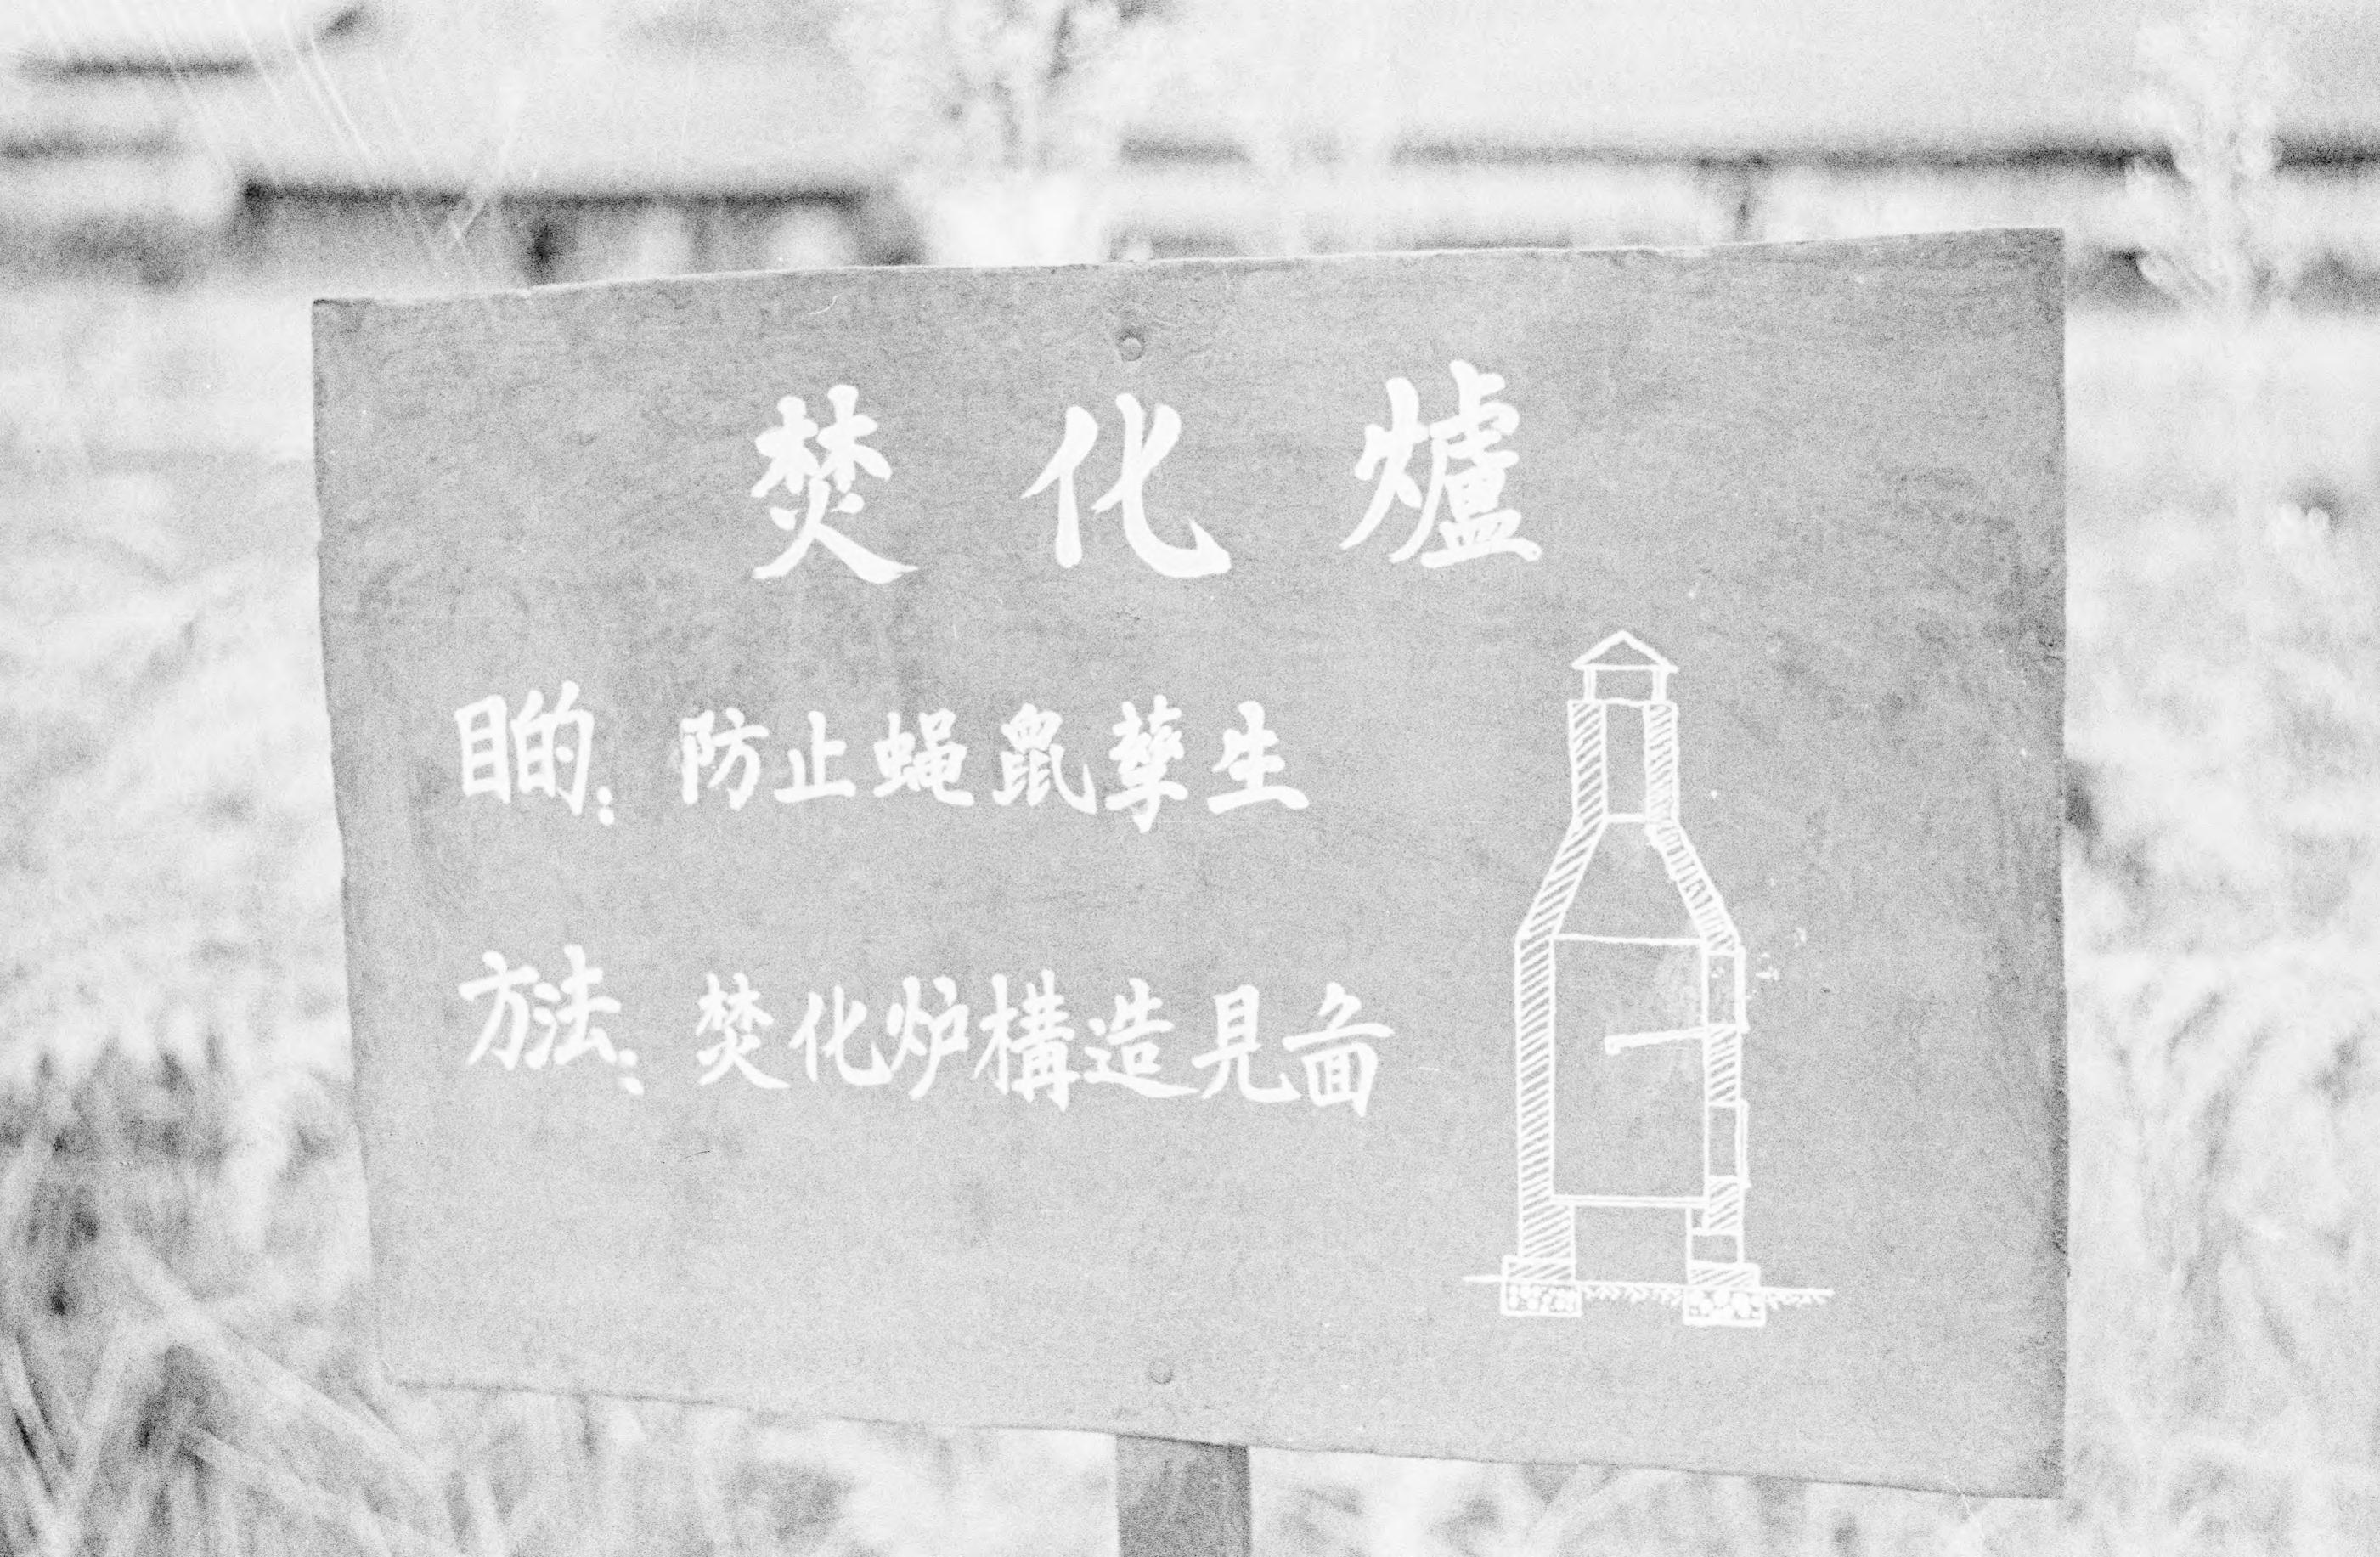 焚化爐
目的: 防止蝇鼠孽生
方法: 焚化炉構造見面